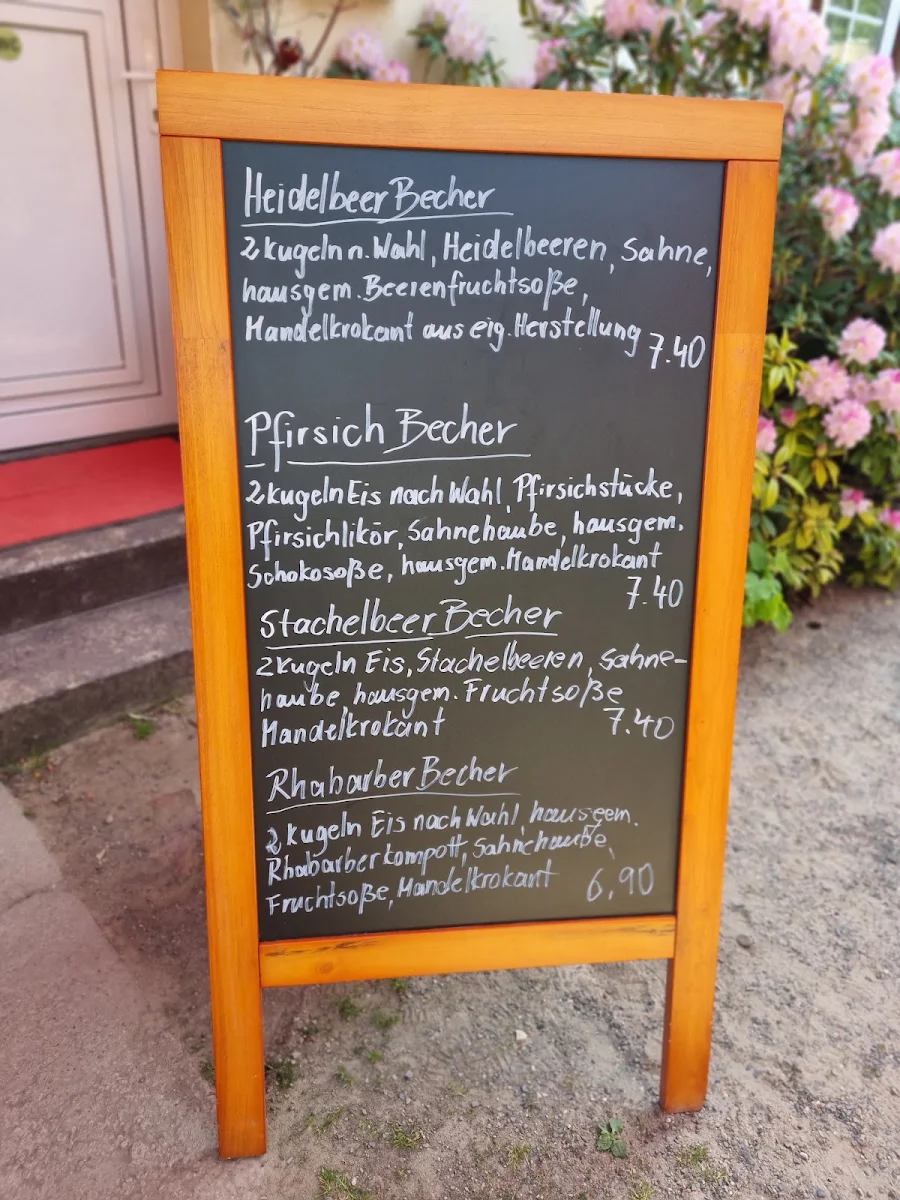 Heidelbeer Becher
2 Kugeln n. Wahl, Heidelbeeren, Sahne,
hausgem. Beerenfruchtsoße,
Mandelkrokant aus eig. Herstellung
7.40
Pfirsich Becher
2 Kugeln Eis nach Wahl, Pfirsichstücke,
Pfirsichlikör, Sahnehaube, hausgem.
Schokosoße, hausgem. Mandelkrokant
7.40
Stachelbeer Becher
2 Kugeln Eis, Stachelbeeren, Sahne-
haube, hausgem. Fruchtsoße
Mandelkrokant 7.40
Rhabarber Becher
2 Kugeln Eis nach Wahl, hausgem.
Rhabarberkompott, Sahnehaube,
Fruchtsoße, Mandelkrokant 6,90